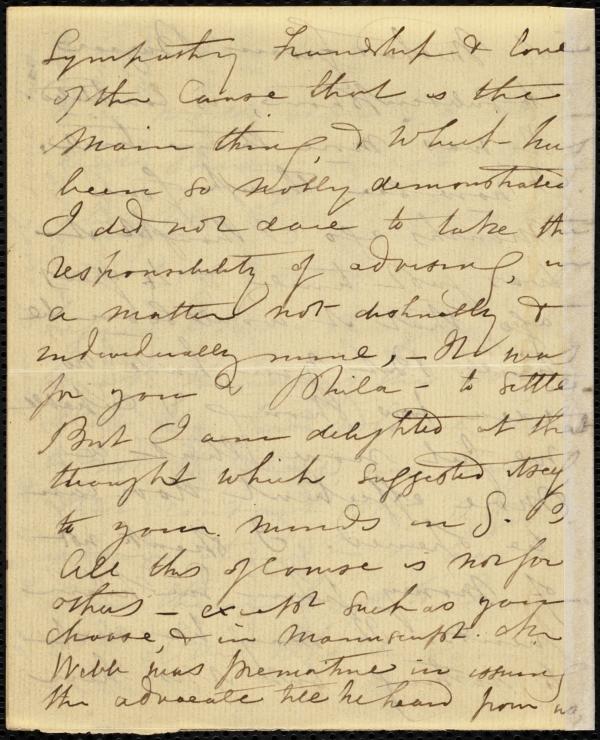 Sympathy Friendship & love
of the Cause that is the
main thing, & What has
been so nobly demonstrated
I did not dare to take the
responsibility of advising, in
a matter not distinctly &
individually mine, - It was
for you & Phila - to settle
But I am delighted at the
thought which suggested itself
to your minds in G. B,
All this of Course is not for
others - except such as you
choose, & in Manuscript. Mr
Webb was premature in issuing
the advocate till he heard from us,